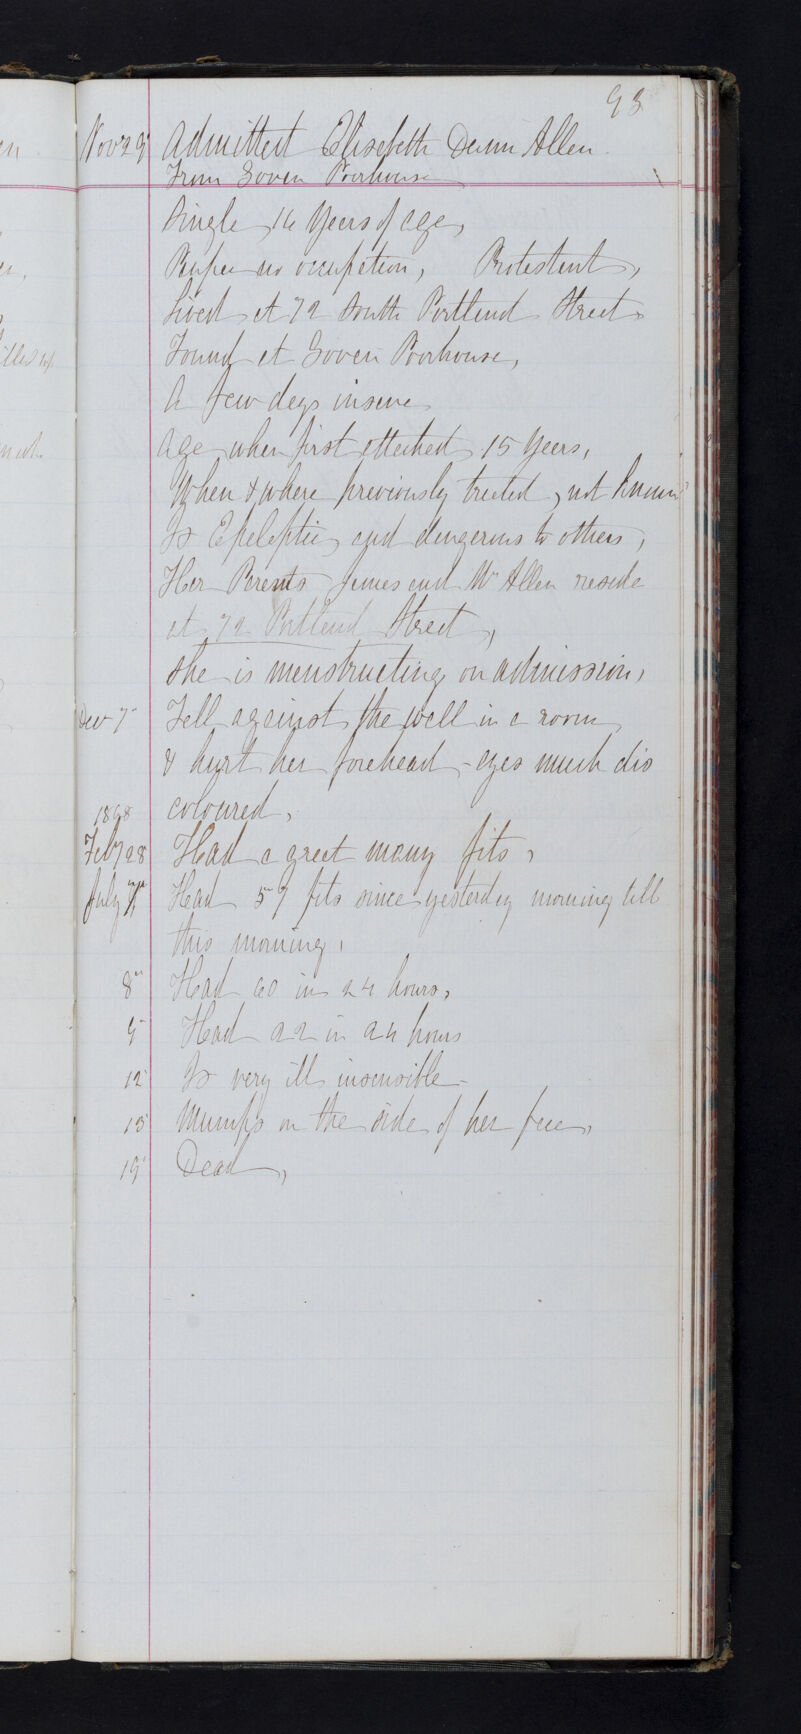 93
Nov 29 Admitted Elisebeth Dunn Allen
From Goven Poorhouse
Single 16 Years of age,
Pauper no occupation, Protestant,
Lived at 72 South Portland Street
Found at Goven Poorhouse,
A few days insane
Age when first attacked 15 Years,
When & where previously treated, not known
Is Epeleptic and dangerous to others,
Her Parents James and Mrs Allen reside
at 72 Portland Street,
She is menstruating on admission,
Dec 7 Fell against the wall in a room
& hurt her forehead - eyes much dis
coloured,
1868
Feby 28 Had a great many fits,
July 7 Had 57 fits since yesterday morning till
this morning,
8 Had 60 in 24 hours,
9 Had 22 in 24 hours
12 Is very ill insensible
15 Mumps on the side of her face,
19 Dead,